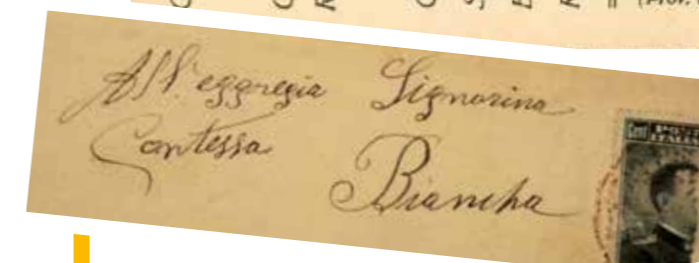 All'eggregia Signorina
Contessa
Biancha